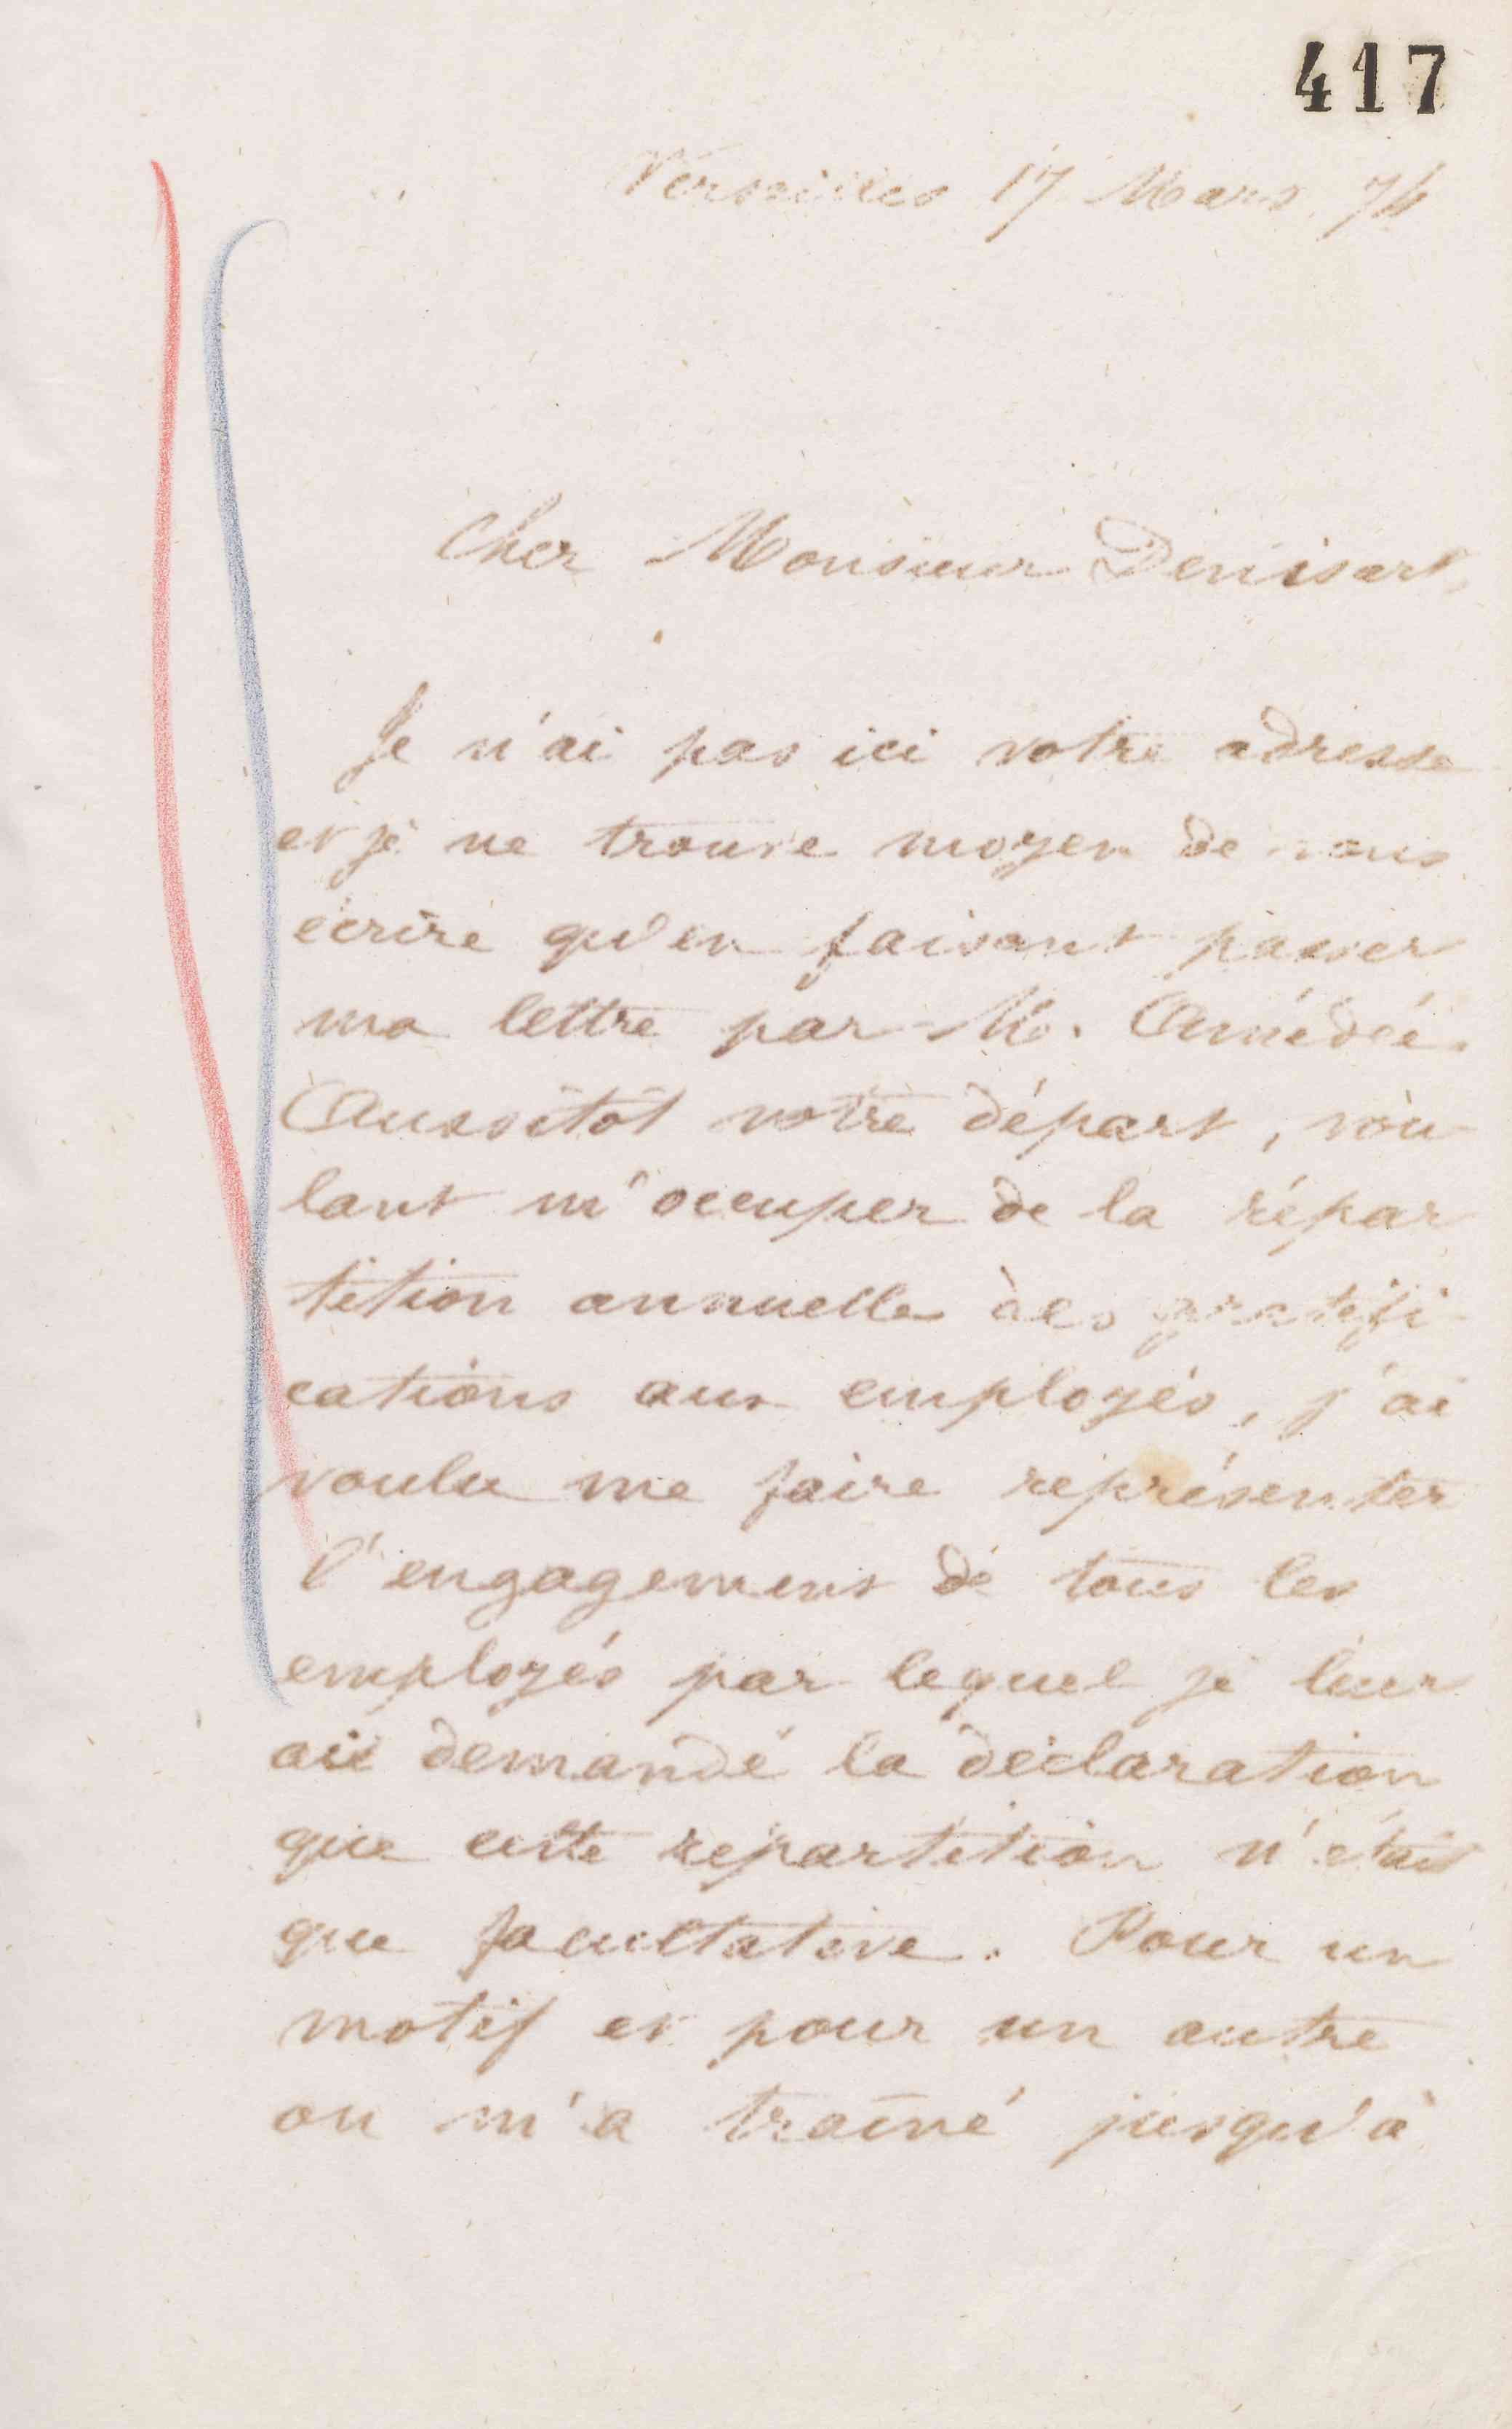 417
Versailles 17 Mars 74
Cher Monsieur Denisart,
Je n'ai pas ici votre adresse
et je ne trouve moyen de vous
écrire qu'en faisant passer
ma lettre par M. Amédée.
Aussitôt votre départ, vou
lant m'occuper de la répar
tition annuelle des gratifi
cations aux employés, j'ai
voulu me faire représenter
l'engagement de tous les
employés par lequel je leur
ai demandé la déclaration
que cette répartition n'était
que facultative. Pour un
motif et pour un autre
on m'a traîné jusqu'à